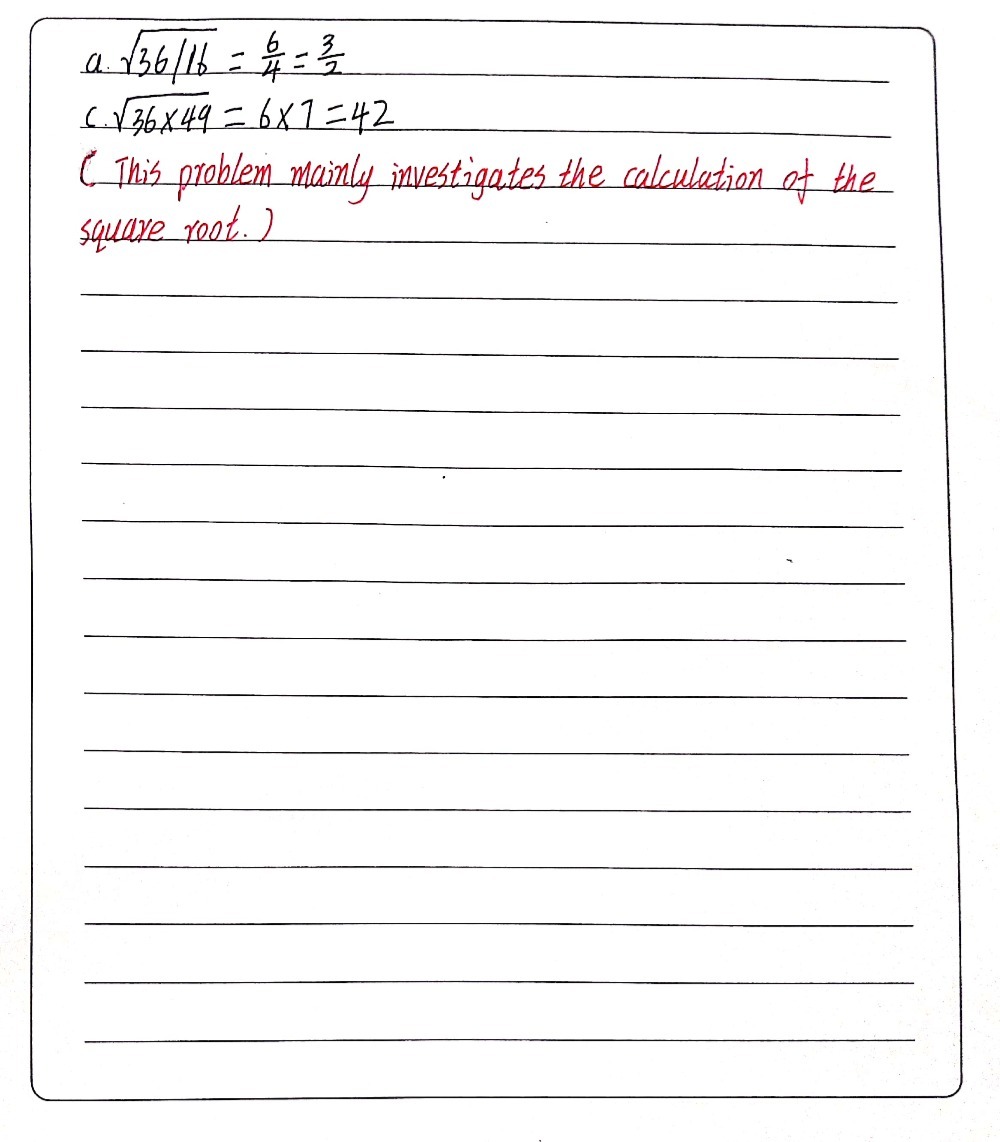 a. √36/16 = 6/4 = 3/2
c. √36×49 = 6×7 = 42
( This problem mainly investigates the calculation of the
square root. )